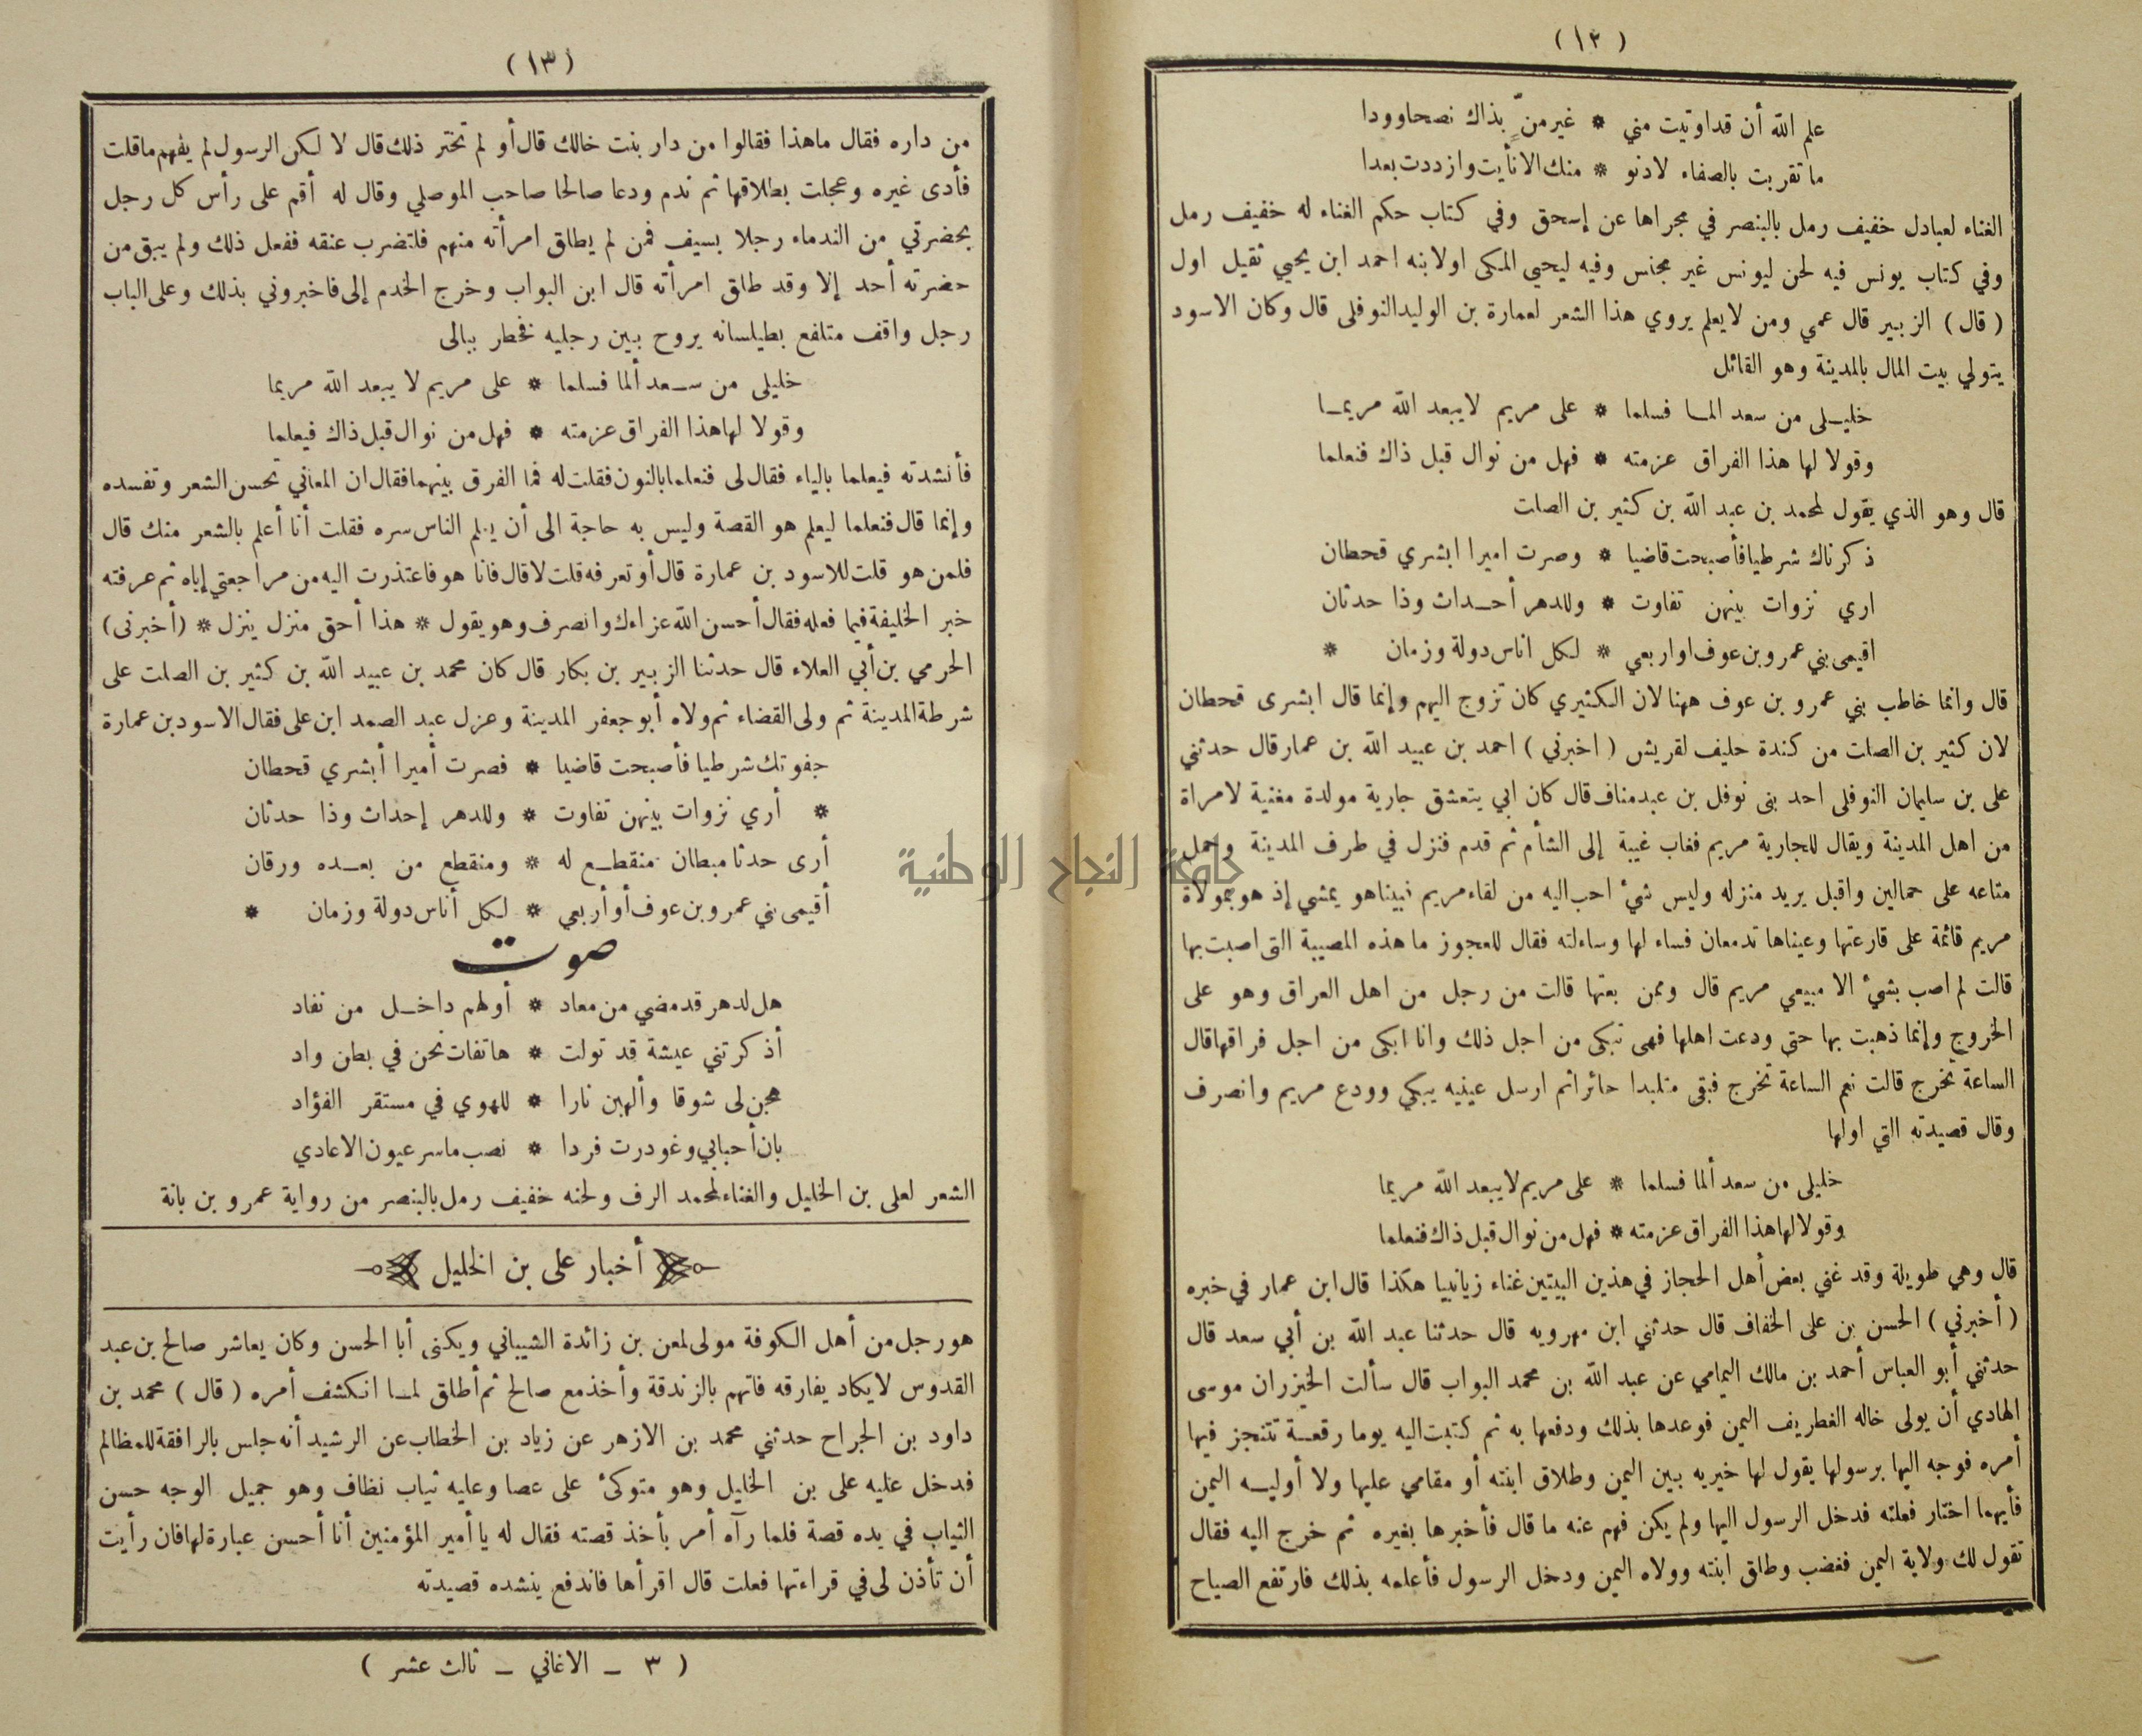 (١٢)
علم الله أن قد اوتيت مني * غير منٍّ بذاك نصحا وودا
ما تقربت بالصفاء لادنو * منك الا نأيت وازددت بعدا
الغناء لعبادل خفيف رمل بالبنصر في مجراها عن إسحق وفي كتاب حكم الغناء له خفيف رمل
وفي كتاب يونس فيه لحن ليونس غير مجنس وفيه ليحيى المكى اولابنه احمد ابن يحيي ثقيل اول
( قال ) الزبير قال عمي ومن لا يعلم يروي هذا الشعر لعمارة بن الوليد النوفلى قال وكان الاسود
يتولي بيت المال بالمدينة وهو القائل
خليـلى من سعد المـا فسلما * على مريم لا يبعد الله مريمـا
وقولا لها هذا الفراق عزمته * فهل من نوال قبل ذاك فنعلما
قال وهو الذي يقول لمحمد بن عبد الله بن كثير بن الصلت
ذكرناك شرطيا فأصبحت قاضيا * وصرت اميرا ابشري قحطان
اري نزوات بينهن تفاوت * وللدهر أحـداث وذا حدثان
اقيمى بني عمرو بن عوف او اربعي * لكل اناس دولة وزمان *
قال وانما خاطب بني عمرو بن عوف ههنا لان الكثيري كان تزوج اليهم وإنما قال ابشرى قحطان
لان كثير بن الصلت من كندة حليف لقريش ( اخبرني ) احمد بن عبيد الله بن عمار قال حدثني
على بن سليمان النوفلى احد بنى نوفل بن عبد مناف قال كان ابي يتعشق جارية مولدة مغنية لامراة
من اهل المدينة ويقال للجارية مريم فغاب غيبة إلى الشأم ثم قدم فنزل في طرف المدينة وحمل
متاعه على حمالين واقبل يريد منزله وليس شئ احب اليه من لقاء مريم فبينا هو يمشي إذ هو بمولاة
مريم قائمة على قارعتها وعيناها تدمعان فساء لها وساءلته فقال للعجوز ما هذه المصيبة التى اصبت بها
قالت لم اصب بشئ الا مبيعي مريم قال وممن بعتها قالت من رجل من اهل العراق وهو على
الخروج وإنما ذهبت بها حتى ودعت اهلها فهى تبكى من اجل ذلك وانا ابكى من اجل فراقها قال
الساعة تخرج قالت نعم الساعة تخرج فبقى متلبدا حائرا ثم ارسل عينيه يبكي وودع مريم وانصرف
وقال قصيدته التي اولها
خليلى من سعد ألما فسلما * على مريم لا يبعد الله مريما
وقولا لها هذا الفراق عزمته * فهل من نوال قبل ذاك فنعلما
قال وهي طويلة وقد غني بعض أهل الحجاز في هذين البيتين غناء زيانبيا هكذا قال ابن عمار في خبره
( أخبرني ) الحسن بن على الخفاف قال حدثني ابن مهرويه قال حدثنا عبد الله بن أبي سعد قال
حدثني أبو العباس أحمد بن مالك اليمامي عن عبد الله بن محمد البواب قال سألت الخيزران موسى
الهادي أن يولى خاله الغطريف اليمن فوعدها بذلك ودفعها به ثم كتبت اليه يوما رقعـة تتنجز فيها
أمره فوجه اليها برسولها يقول لها خيريه بين اليمن وطلاق ابنته أو مقامي عليها ولا أوليـه اليمن
فأيهما اختار فعلته فدخل الرسول اليها ولم يكن فهم عنه ما قال فأخبرها بغيره ثم خرج اليه فقال
تقول لك ولاية اليمن فغضب وطلق ابنته وولاه اليمن ودخل الرسول فأعلمه بذلك فارتفع الصياح
(١٣)
من داره فقال ما هذا فقالوا من دار بنت خالك قال أو لم تختر ذلك قال لا لكن الرسول لم يفهم ما قلت
فأدى غيره وعجلت بطلاقها ثم ندم ودعا صالحا صاحب الموصلي وقال له أقم على رأس كل رجل
بحضرتي من الندماء رجلا بسيف فمن لم يطلق امرأته منهم فلتضرب عنقه ففعل ذلك ولم يبق من
حضرته أحد إلا وقد طلق امرأته قال ابن البواب وخرج الخدم إلى فاخبروني بذلك وعلى الباب
رجل واقف متلفع بطيلسانه يروح بين رجليه فخطر ببالى
خليلى من سـعد ألما فسلما * على مريم لا يبعد الله مريما
وقولا لها هذا الفراق عزمته * فهل من نوال قبل ذاك فيعلما
فأنشدته فيعلما بالياء فقال لى فنعلما بالنون فقلت له فما الفرق بينهما فقال ان المعاني تحسن الشعر وتفسده
وإنما قال فنعلما ليعلم هو القصة وليس به حاجة الى أن يعلم الناس سره فقلت أنا أعلم بالشعر منك قال
فلمن هو قلت للاسود بن عمارة قال أو تعرفه قلت لا قال فانا هو فاعتذرت اليه من مراجعتي إياه ثم عرفته
خبر الخليفة فيما فعله فقال أحسن الله عزاءك وانصرف وهو يقول * هذا أحق منزل ينزل * (أخبرنى)
الحرمي بن أبي العلاء قال حدثنا الزبير بن بكار قال كان محمد بن عبيد الله بن كثير بن الصلت على
شرطة المدينة ثم ولى القضاء ثم ولاه أبو جعفر المدينة وعزل عبد الصمد ابن على فقال الاسود بن عمارة
جفوتك شرطيا فأصبحت قاضيا * فصرت أميرا أبشري قحطان
* أري نزوات بينهن تفاوت * وللدهر إحداث وذا حدثان
أرى حدثا مبطان منقطـع له * ومنقطع من بعـده ورقان
أقيمى بني عمرو بن عوف أو أربعي * لكل أناس دولة وزمان *
صوت
هل لدهر قد مضي من معاد * أو لهم داخـل من نفاد
أذكرتني عيشة قد تولت * هاتفات نحن في بطن واد
هجن لى شوقا وألهبن نارا * للهوي في مستقر الفؤاد
بان أحبابي وغودرت فردا * نصب ما سر عيون الاعادي
الشعر لعلى بن الخليل والغناء لمحمد الرف ولحنه خفيف رمل بالبنصر من رواية عمرو بن بانة
أخبار على بن الخليل
هو رجل من أهل الكوفة مولى لمعن بن زائدة الشيباني ويكنى أبا الحسن وكان يعاشر صالح بن عبد
القدوس لا يكاد يفارقه فاتهم بالزندقة وأخذ مع صالح ثم أطلق لمـا انكشف أمره ( قال ) محمد بن
داود بن الجراح حدثني محمد بن الازهر عن زياد بن الخطاب عن الرشيد أنه جلس بالرافقة للمظالم
فدخل عليه على بن الخليل وهو متوكئ على عصا وعليه ثياب نظاف وهو جميل الوجه حسن
الثياب في يده قصة فلما رآه أمر بأخذ قصته فقال له يا أمير المؤمنين أنا أحسن عبارة لها فان رأيت
أن تأذن لى في قراءتها فعلت قال اقرأها فاندفع ينشده قصيدته
( ٣ ــ الاغاني ــ ثالث عشر )
جامعة النجاح الوطنية